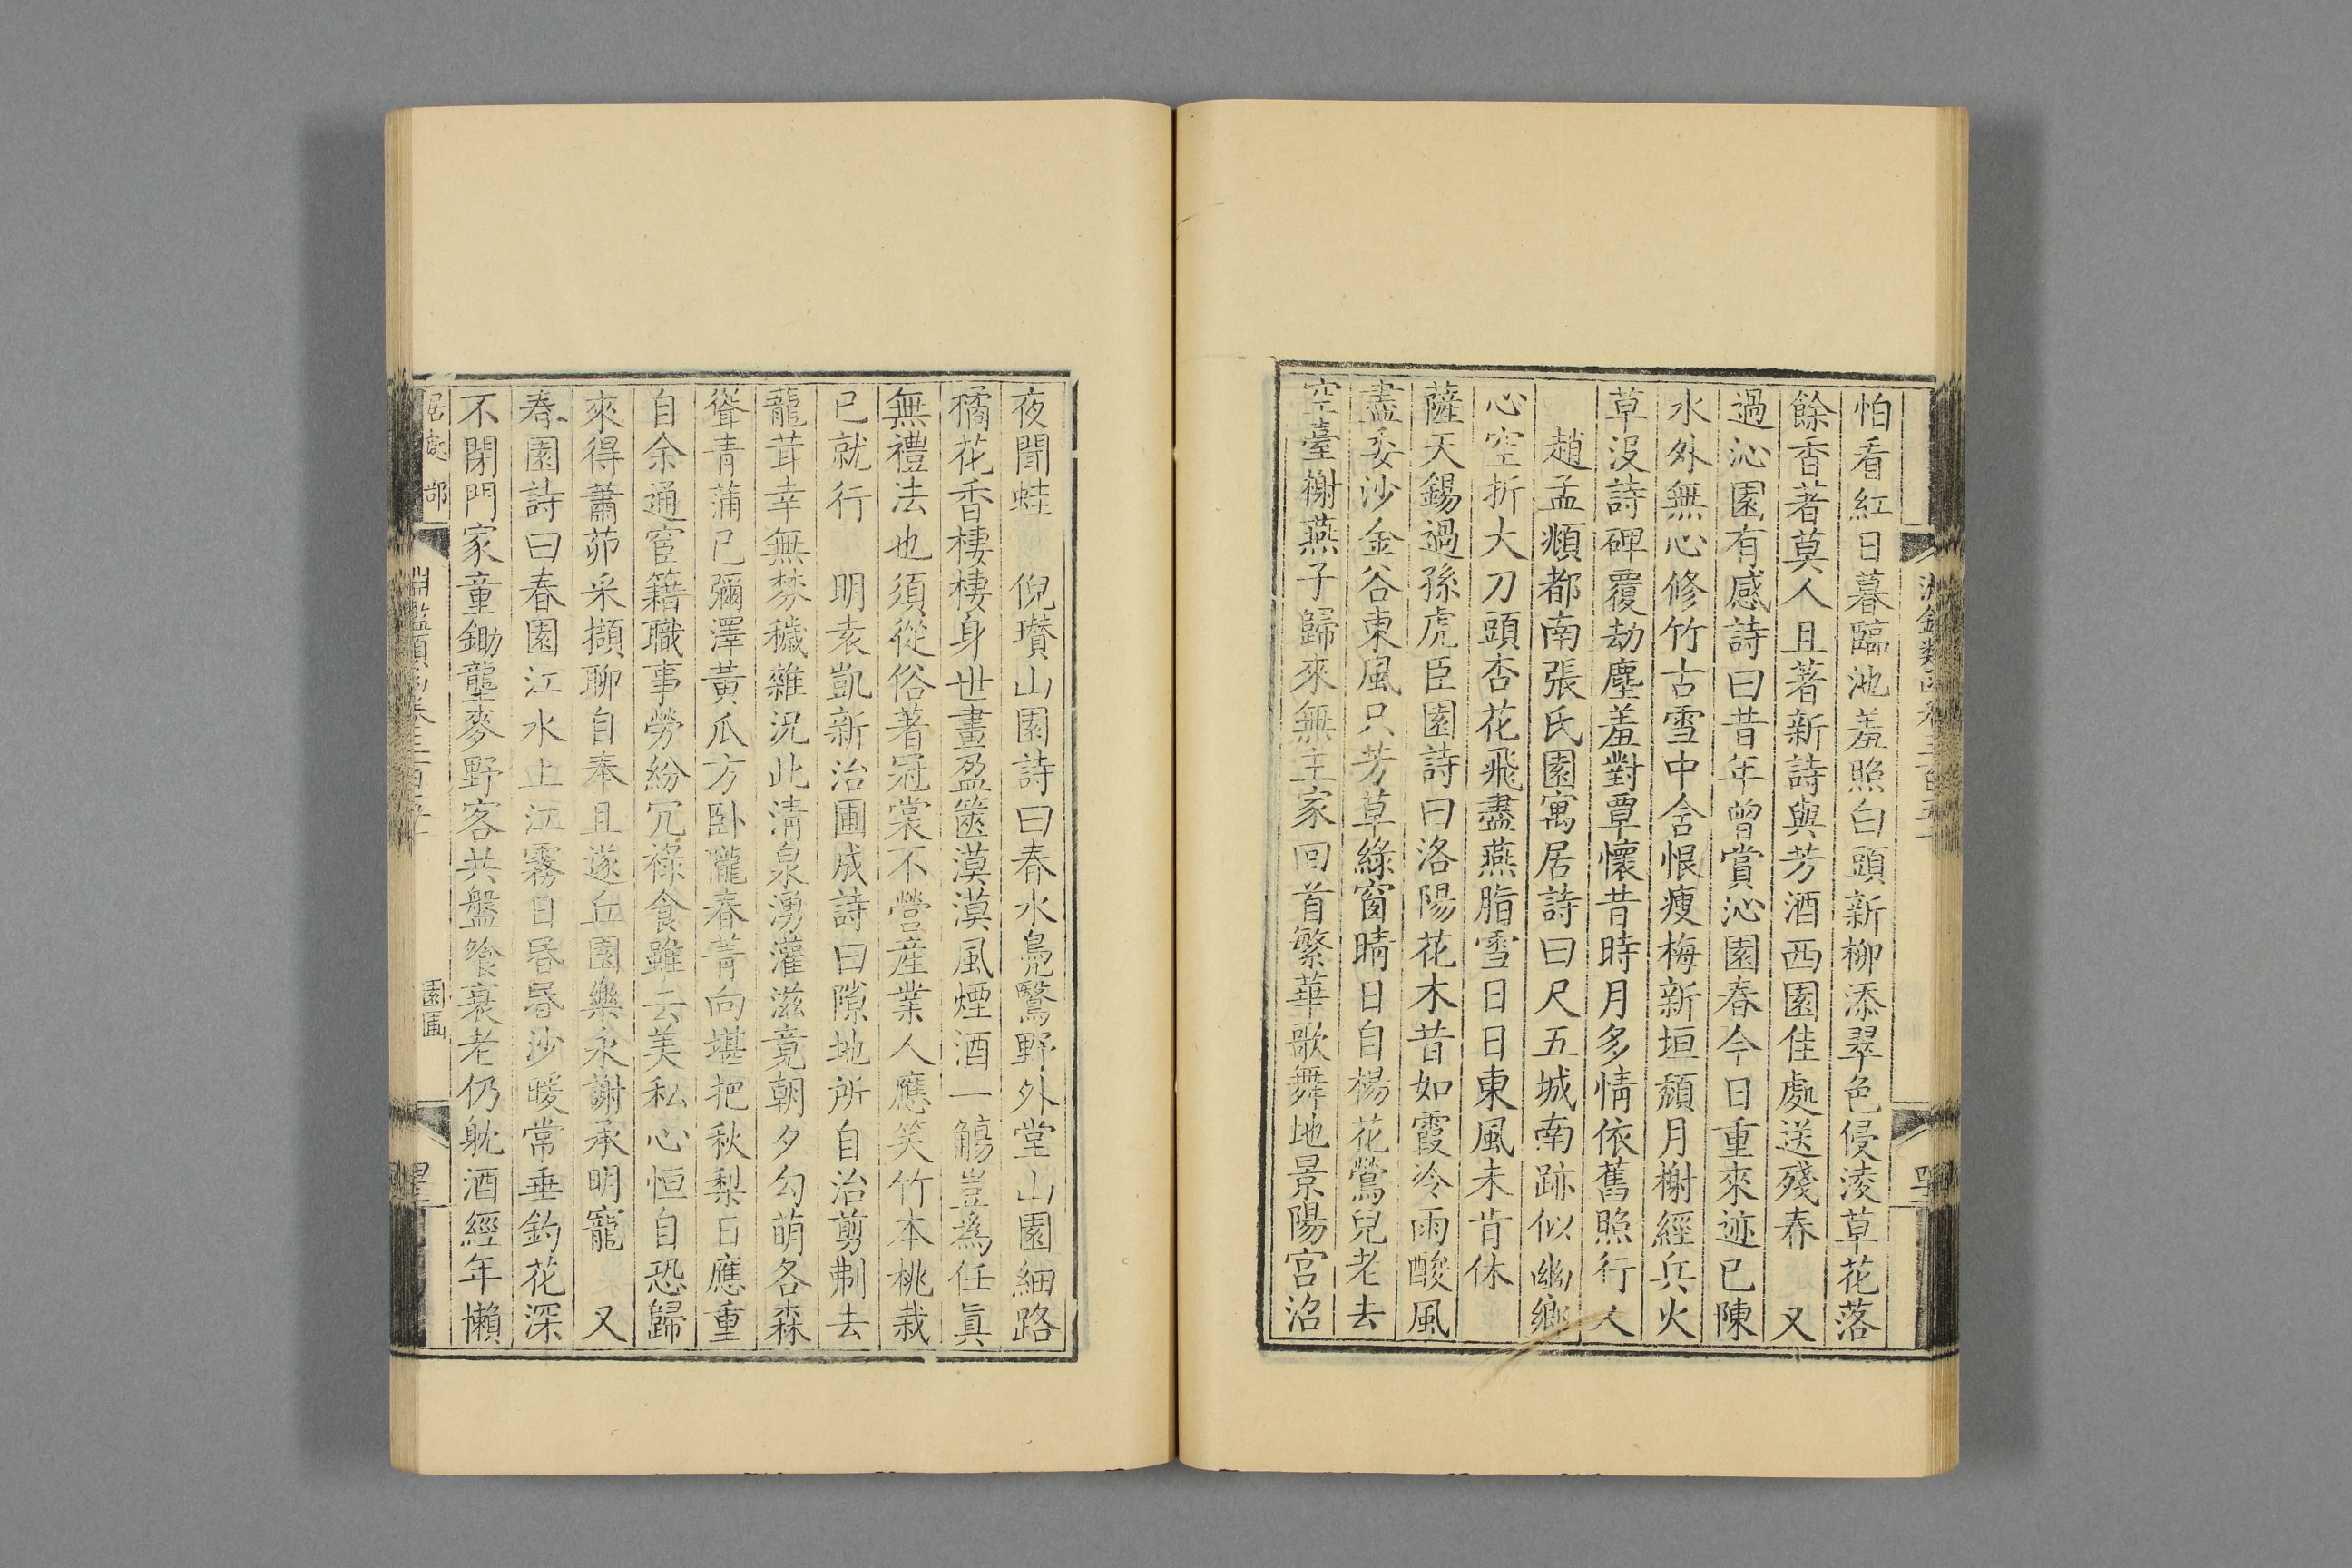 怕看紅日暮臨池羞照白頭新柳添翠色侵淩草花落
餘香著莫人且著新詩與芳酒西園佳處送殘春 又
過沁園有感詩曰昔年曾賞沁園春今日重來迹已陳
水外無心修竹古雪中含恨瘦梅新垣頹月榭經兵火
草没詩碑覆劫塵羞對覃懷昔時月多情依舊照行人
趙孟頫都南張氏園寓居詩曰尺五城南跡似幽鄉
心空折大刀頭杏花飛盡燕脂雪日日東風未肯休
薩天錫過孫虎臣園詩曰洛陽花木昔如霞冷雨酸風
盡委沙金谷東風只芳草綠窗晴日自楊花鶯兒老去
空臺榭燕子歸來無主家回首繁華歌舞地景陽宮沼
夜聞蛙 倪瓚山園詩曰春水鳧鷖野外堂山園細路
橘花香棲棲身世畫盈篋漠漠風煙酒一觴豈為任眞
無禮法也須從俗著冠裳不營産業人應笑竹本桃栽
已就行 明袁凱新治圃成詩曰隙地所自治剪剃去
龍茸幸無棼穢雜況此清泉湧灌滋竟朝夕勾萌各森
聳青蒲已彌澤黃瓜方卧隴春菁向堪把秋梨日應重
自余通宦籍職事勞紛冗祿食雖云美私心恒自恐歸
來得蕭茆采擷聊自奉且遂丘園樂永謝承明寵 又
春園詩曰春園江水上江霧日昏昏沙暖常垂釣花深
不閉門家童鋤壟麥野客共盤飡衰老仍躭酒經年懶
居處部 園圃